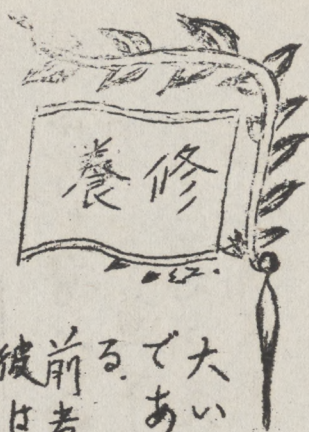 修養
大い
であ
る.
前者
彼は